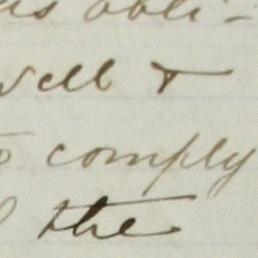 as obli-
well &
to comply
the